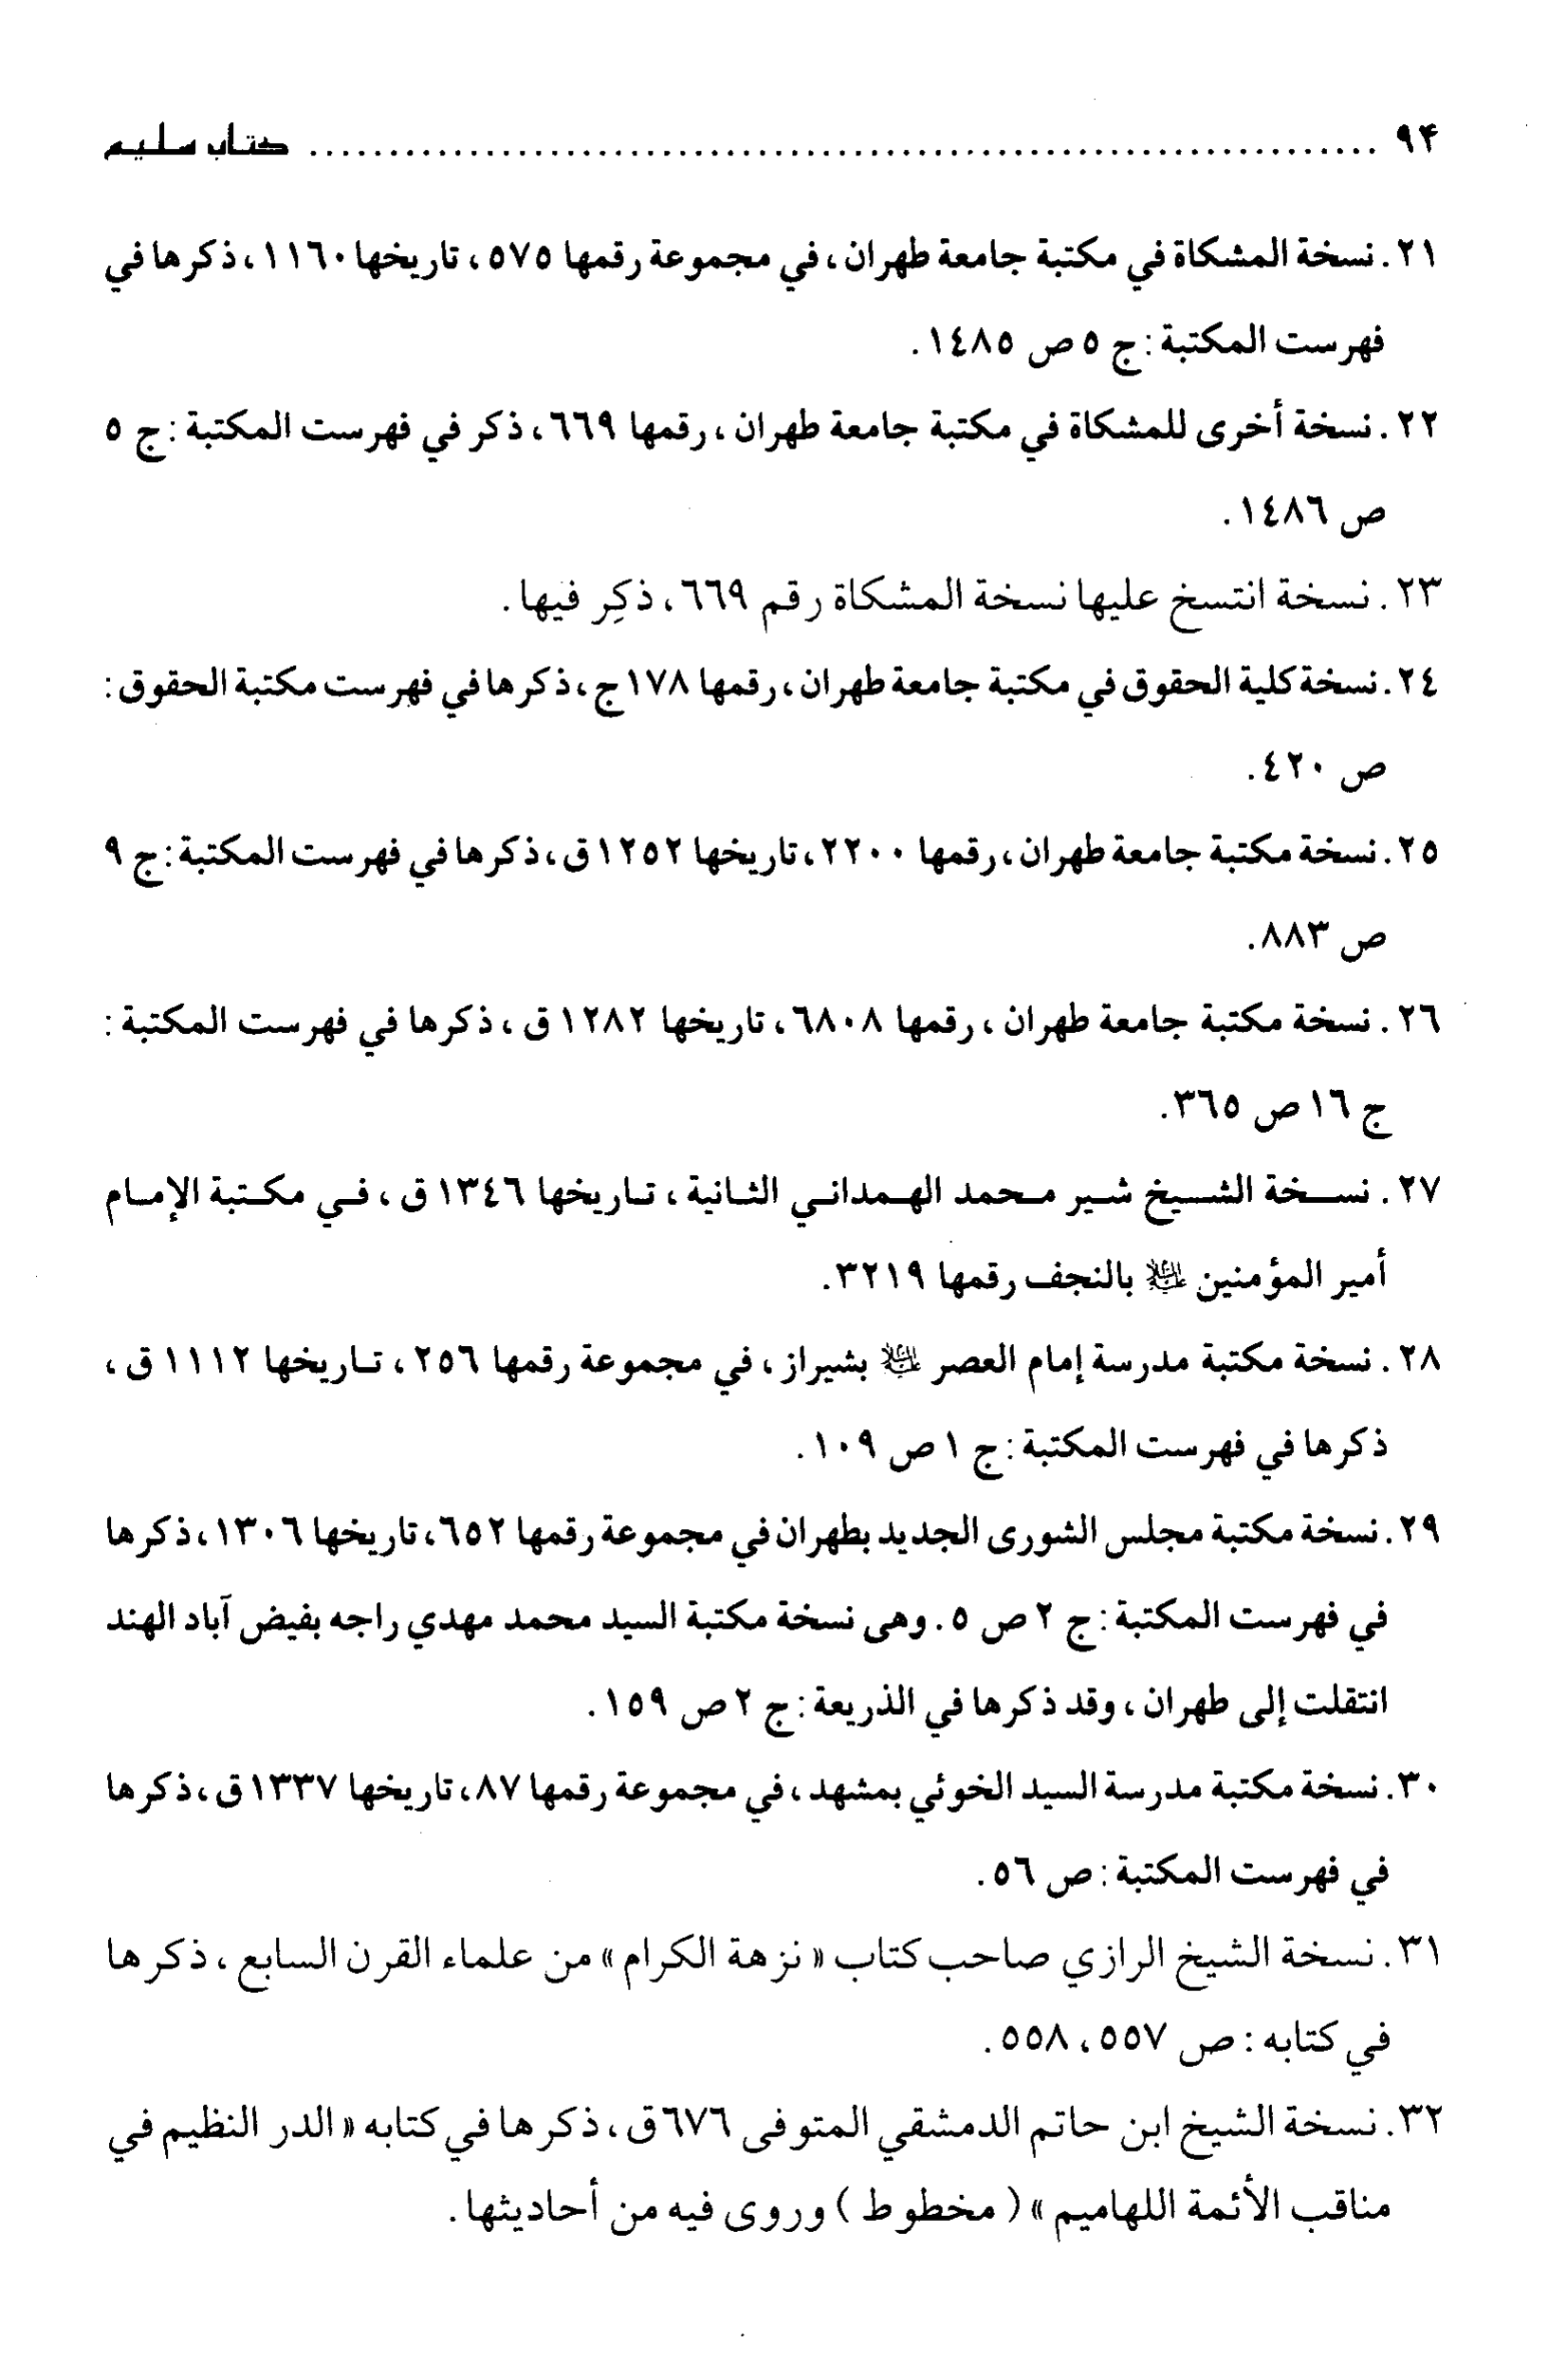 ٩۴ ........................................ كتاب سليم
٢١. نسخة المشكاة في مكتبة جامعة طهران، في مجموعة رقمها ٥٧٥، تاريخها ١١٦٠، ذكرها في
فهرست المكتبة: ج ٥ ص ١٤٨٥.
٢٢. نسخة أخرى للمشكاة في مكتبة جامعة طهران، رقمها ٦٦٩، ذكر في فهرست المكتبة: ج ٥
ص ١٤٨٦.
٢٣. نسخة انتسخ عليها نسخة المشكاة رقم ٦٦٩، ذكِر فيها.
٢٤. نسخة كلية الحقوق في مكتبة جامعة طهران، رقمها ١٧٨ ج، ذكرها في فهرست مكتبة الحقوق:
ص ٤٢٠.
٢٥. نسخة مكتبة جامعة طهران، رقمها ٢٢٠٠، تاريخها ١٢٥٢ ق، ذكرها في فهرست المكتبة: ج ٩
ص ٨٨٣.
٢٦. نسخة مكتبة جامعة طهران، رقمها ٦٨٠٨، تاريخها ١٢٨٢ ق، ذكرها في فهرست المكتبة:
ج ١٦ ص ٣٦٥.
٢٧. نسخة الشيخ شير محمد الهمداني الثانية، تاريخها ١٣٤٦ ق، في مكتبة الإمام
أمير المؤمنين عليه السلام بالنجف رقمها ٣٢١٩.
٢٨. نسخة مكتبة مدرسة إمام العصر عليه السلام بشيراز، في مجموعة رقمها ٢٥٦، تاريخها ١١١٢ ق،
ذكرها في فهرست المكتبة: ج ١ ص ١٠٩.
٢٩. نسخة مكتبة مجلس الشورى الجديد بطهران في مجموعة رقمها ٦٥٢، تاريخها ١٣٠٦، ذكرها
في فهرست المكتبة: ج ٢ ص ٥. وهى نسخة مكتبة السيد محمد مهدي راجه بفيض آباد الهند
انتقلت إلى طهران، وقد ذكرها في الذريعة: ج ٢ ص ١٥٩.
٣٠. نسخة مكتبة مدرسة السيد الخوئي بمشهد، في مجموعة رقمها ٨٧، تاريخها ١٣٣٧ ق، ذكرها
في فهرست المكتبة: ص ٥٦.
٣١. نسخة الشيخ الرازي صاحب كتاب «نزهة الكرام» من علماء القرن السابع، ذكرها
في كتابه: ص ٥٥٧، ٥٥٨.
٣٢. نسخة الشيخ ابن حاتم الدمشقي المتوفى ٦٧٦ ق، ذكرها في كتابه «الدر النظيم في
مناقب الأئمة اللهاميم» (مخطوط) وروى فيه من أحاديثها.